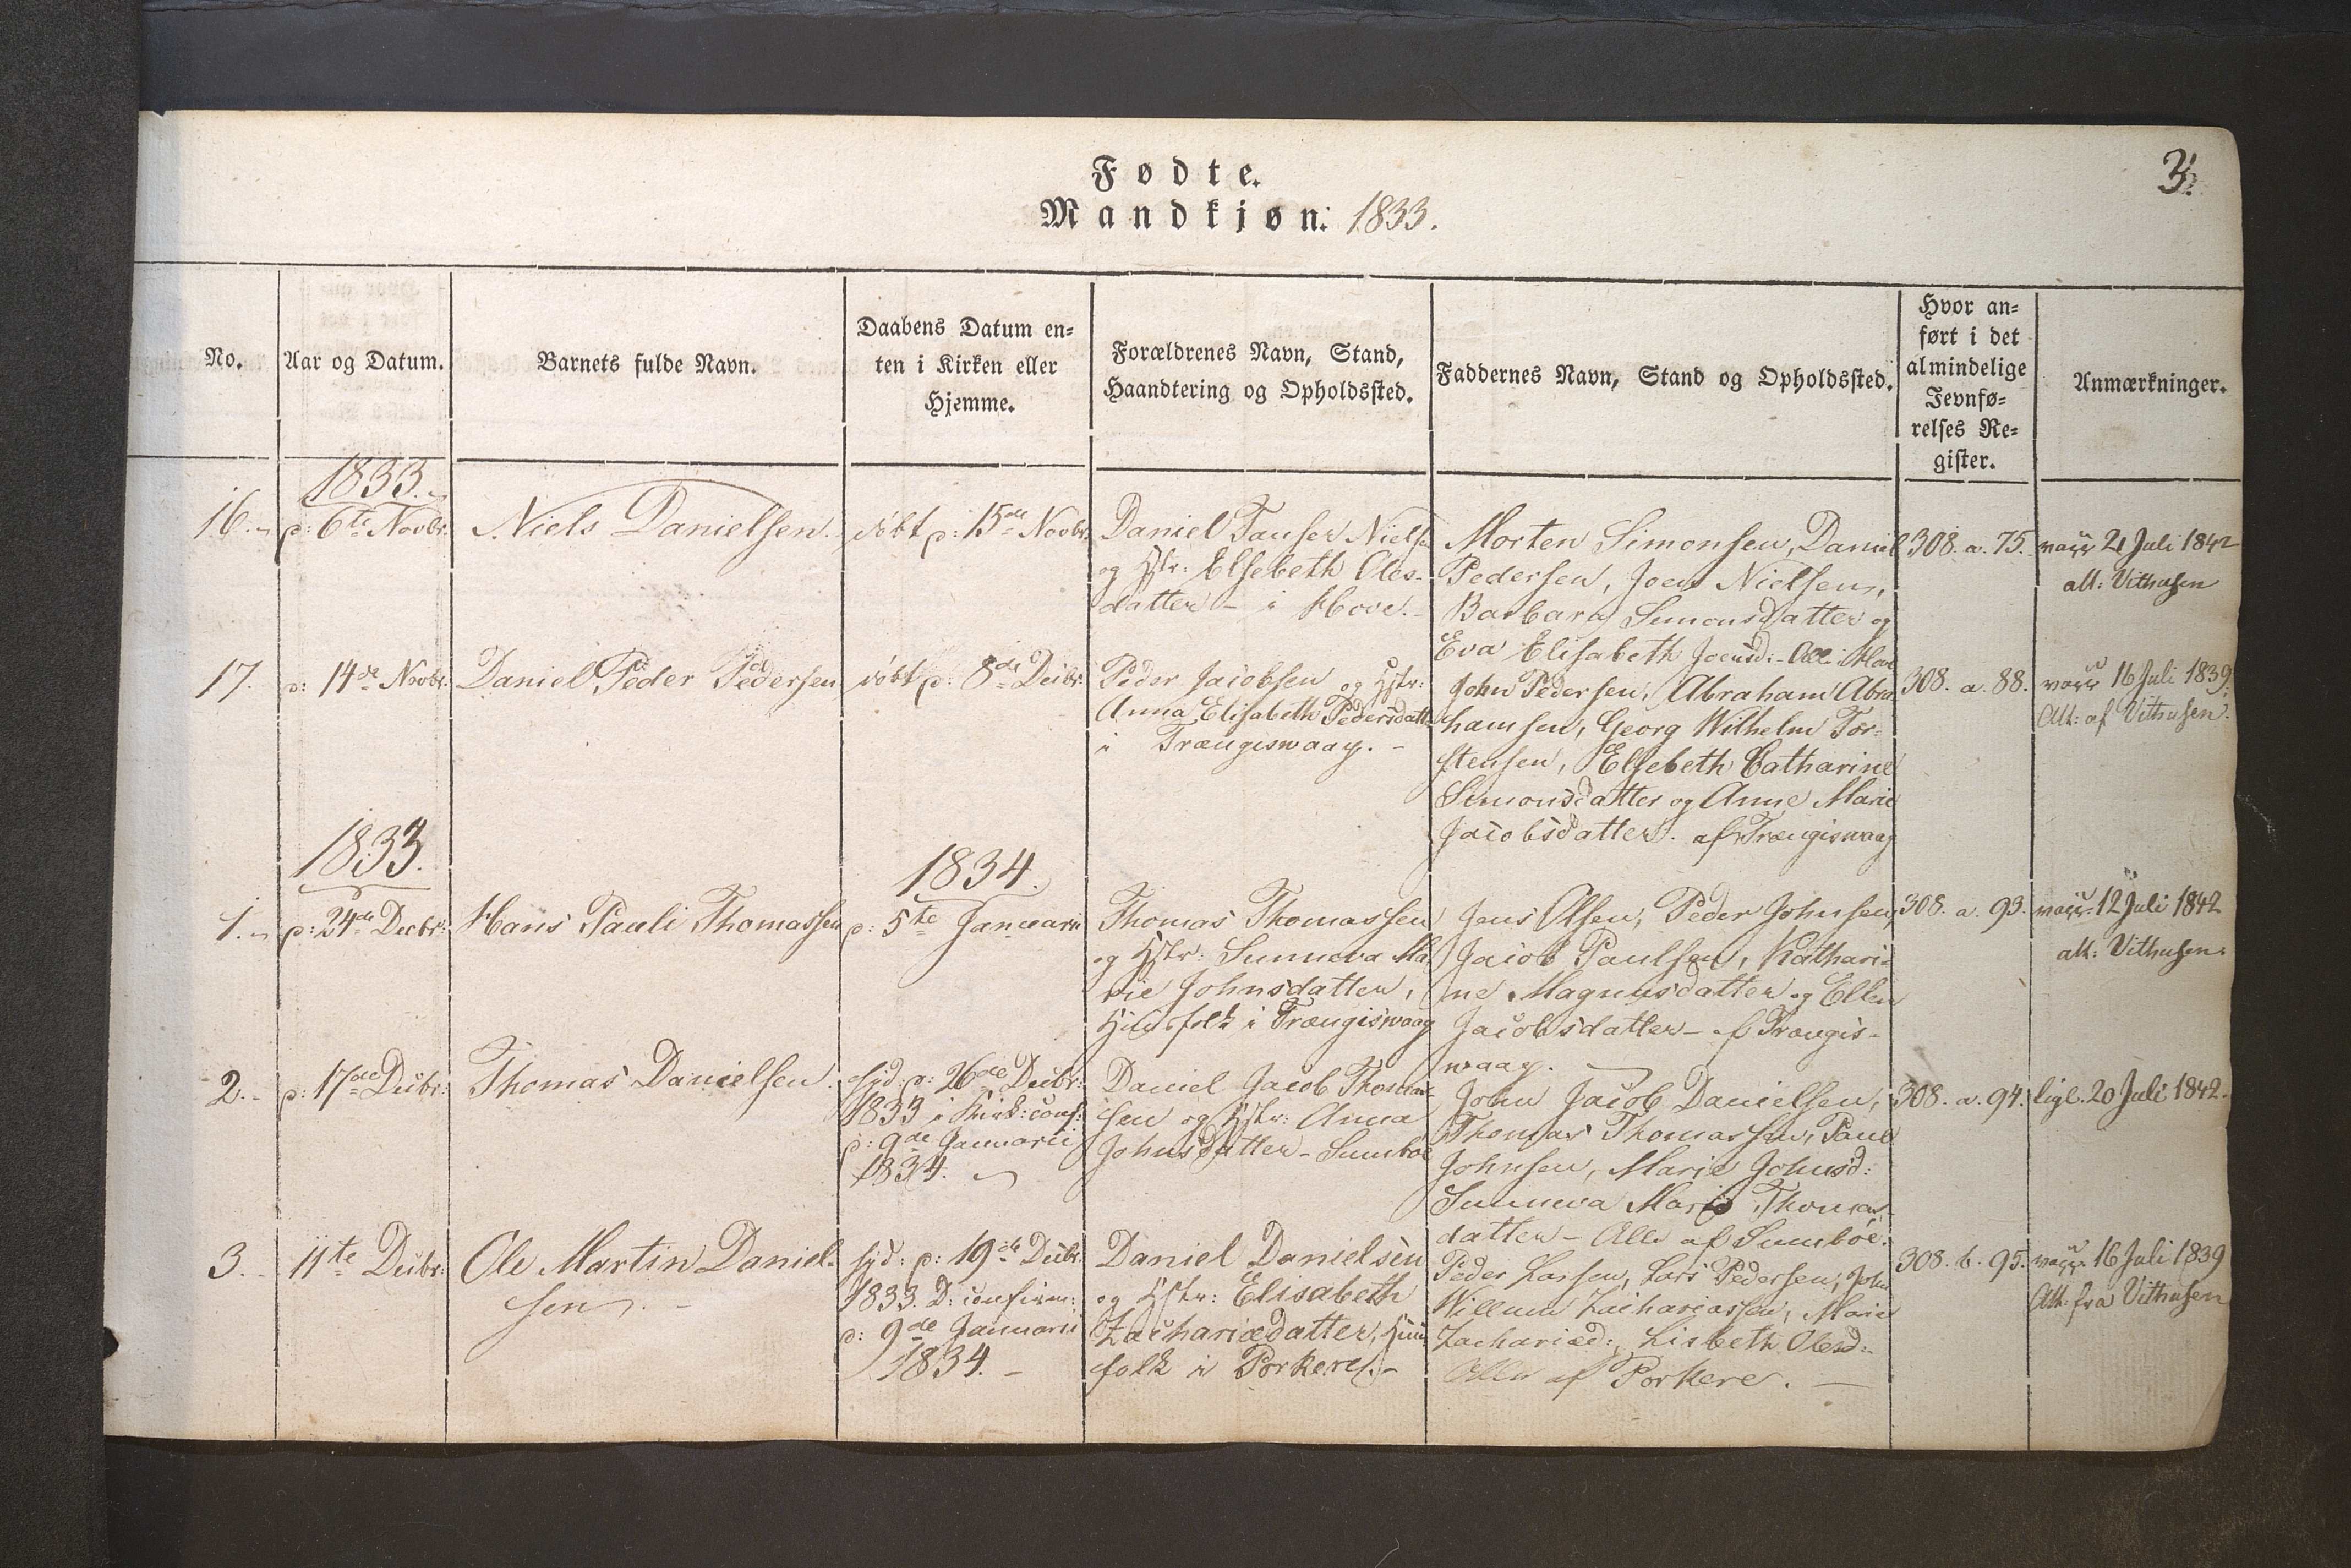 Fødte.
Mandkjøn: 1833.
3.
No.
Aar og Datum.
Barnets fulde Navn.
Daabens Datum en-
ten i Kirken eller
Hjemme.
Forældrenes Navn, Stand,
Haandtering og Opholdssted.
Faddernes Navn, Stand og Opholdssted.
Hvor an-
ført i det
almindelige
Jevnfø-
relses Re-
gister.
Anmærkninger.
1833.
16.
p: 6te Novbr.
Niels Danielsen.
døbt p: 15de Novbr.
Daniel Tauser Niels
og Hstr: Elsebeth Oles-
datter - i Hove.
Morten Simonsen, Daniel
Pedersen, Joen Nielsen,
Barbara Simonsdatter og
Eva Elisabeth Joensd: - Alle i Hove
308. a. 75.
vacc 21 Juli 1842
att: Vithusen
17.
p: 14de Novbr.
Daniel Peder Pedersen
døbt p: 8de Decbr.
Peder Jacobsen og Hstr:
Anna Elisabeth Pedersdatt
i Trængiswaag. -
John Pedersen, Abraham Abra-
hamsen, Georg Wilhelm Tor-
stensen, Elsebeth Catharine
Simonsdatter og Anne Marie
Jacobsdatter. af Trængiswaag
308. a. 88.
vacc 16 Juli 1839
Att: af Vithusen.
1833.
1834.
1.
p: 24de Decbr:
Hans Pauli Thomassen
p: 5te Januarii
Thomas Thomassen
og Hstr: Sunneva Ma-
rie Johnsdatter,
Huusfolk i Trængiswaag
Jens Olsen, Peder Johnsen,
Jacob Paulsen, Kathari-
ne Magnusdatter og Ellen
Jacobsdatter - af Trængis-
waag.
308. a. 93.
vacc. 12 Juli 1842
att: Vithusen.
2.
p: 17de Decbr:
Thomas Danielsen.
hjd: p: 26de Decbr:
1833 i Kirk: conf:
p: 9de Januarii
1834.
Daniel Jacob Thomas-
sen og Hstr: Anna
Johnsdatter - Sumböe
John Jacob Danielsen,
Thomas Thomassen, Paul
Johnsen, Marie Johnsd:
Sunneva Marie Thomas-
datter - Alle af Sumböe.
308. a. 94.
lige. 20 Juli 1842.
3.
11te Decbr:
Ole Martin Daniel-
sen. -
hjd: p: 19de Decbr.
1833. D: confirm:
p: 9de Januarii
1834. -
Daniel Danielsen
og Hstr: Elisabeth
Zachariædatter, Huus-
folk i Porkere. -
Peder Larsen, Lars Pedersen, John
Willum Zachariassen, Marie
Zachariæd:, Lisbeth Olesd:
Alle af Porkere. -
308. b. 95.
vacc. 16 Juli 1839
Att: fra Vithusen